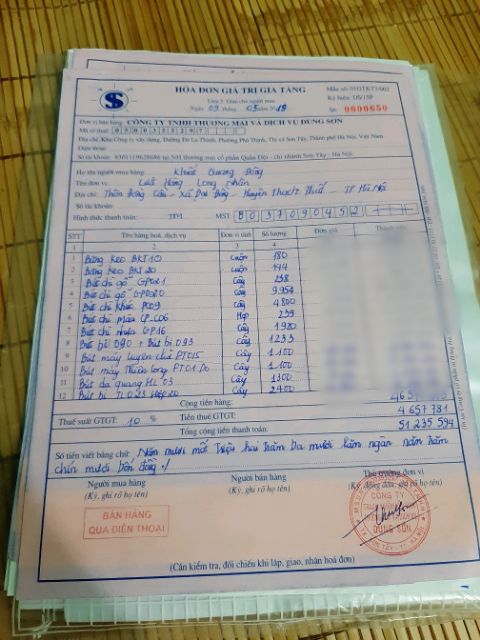 HÓA ĐƠN GIÁ TRỊ GIA TĂNG
Mẫu số: 01GTKT3/002
Liên 2: Giao cho người mua
Ký hiệu: DS/15P
Ngày 09 tháng 05 năm 2018
Số: 0000650
Đơn vị bán hàng: CÔNG TY TNHH THƯƠNG MẠI VÀ DỊCH VỤ DUNG SƠN
Mã số thuế:
Địa chỉ: Khu Công ty xây dựng, Đường Đê La Thành, Phường Phú Thịnh, Thị xã Sơn Tây, Thành phố Hà Nội, Việt Nam
Điện thoại:
Số tài khoản: NH thương mại cổ phần Quân Đội - chi nhánh Sơn Tây - Hà Nội
Họ tên người mua hàng: Khuất Dương Đông
Tên đơn vị: Hàng Long Nhân
Địa chỉ: Thôn Đồng Cầu - Xã Đại Đồng - Huyện Thạch Thất - TP Hà Nội
Số tài khoản:
Hình thức thanh toán: TM MST: 0103709045 2
STT Tên hàng hoá, dịch vụ Đơn vị tính Số lượng Đơn giá
1 2 3 4
1 Băng keo BKT10 Cuộn 180
2 Băng keo BKT20 Cuộn 144
3 Bút chì gỗ GP021 Cây 238
4 Bút chì gỗ GP020 Cây 9.954
5 Bút chì khúc PC09 Cây 4.800
6 Bút chì màu CP-C06 Hộp 239
7 Bút chì nhựa GP16 Cây 1920
8 Bút bi 090 + Bút bi 093 Cây 1233
9 Bút máy luyện chữ PT015 Cây 1.100
10 Bút máy Thiên Long PT01 Do Cây 1.100
11 Bút dạ quang HL 03 Cây 1300
12 Bút bi TL023 Cây 2400
Cộng tiền hàng:
Thuế suất GTGT: 10 % Tiền thuế GTGT: 4 657 781
Tổng cộng tiền thanh toán: 51 235 594
Số tiền viết bằng chữ: Năm mươi mốt triệu hai trăm ba mươi lăm ngàn năm trăm
chín mươi bốn đồng ./
Người mua hàng Người bán hàng Thủ trưởng đơn vị
(Ký, ghi rõ họ tên) (Ký, ghi rõ họ tên) (Ký, đóng dấu, ghi rõ họ tên)
BÁN HÀNG
QUA ĐIỆN THOẠI
CÔNG TY
DUNG SƠN
(Cần kiểm tra, đối chiếu khi lập, giao, nhận hoá đơn)